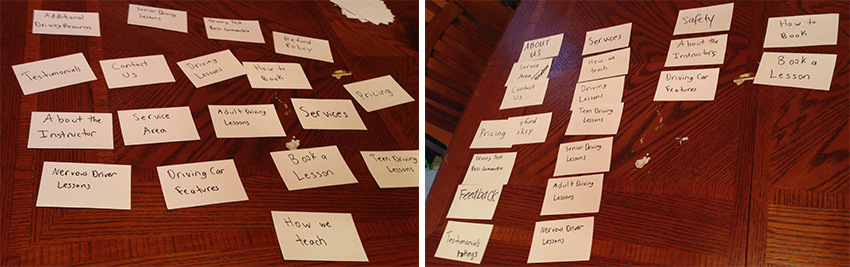 Additional
Driving Resources
Senior Driving
Lessons
Driving Test
Pass Guarantee
Refund
Policy
Testimonials
Contact
Us
Driving
Lessons
How to
Book
Pricing
About the
Instructor
Service
Area
Adult Driving
Lessons
Services
Nervous Driver
Lessons
Driving Car
Features
Book a
Lesson
Teen Driving
Lessons
How we
teach
ABOUT
US
Service
Area
Contact
Us
Pricing
efund
olicy
Driving Test
Pass Guarantee
Feedback
Testimonials
ratings
Services
How we
teach
Driving
Lessons
Teen Driving
Lessons
Senior Driving
Lessons
Adult Driving
Lessons
Nervous Driver
Lessons
Safety
About the
Instructors
Driving Car
Features
How to
Book
Book a
Lesson